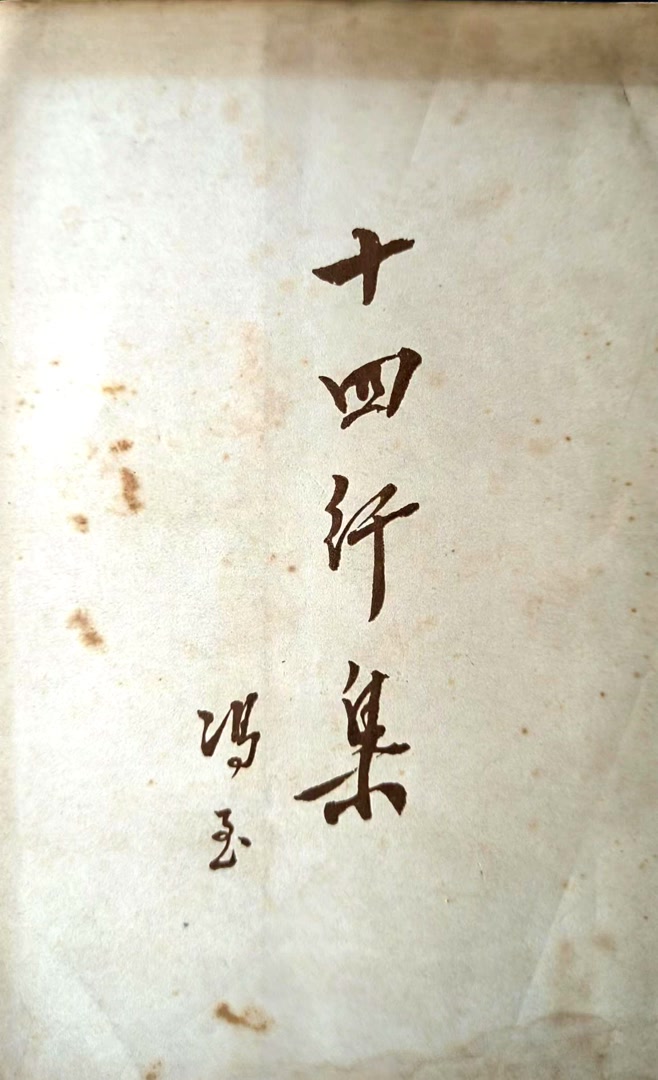 十四行集
馮至